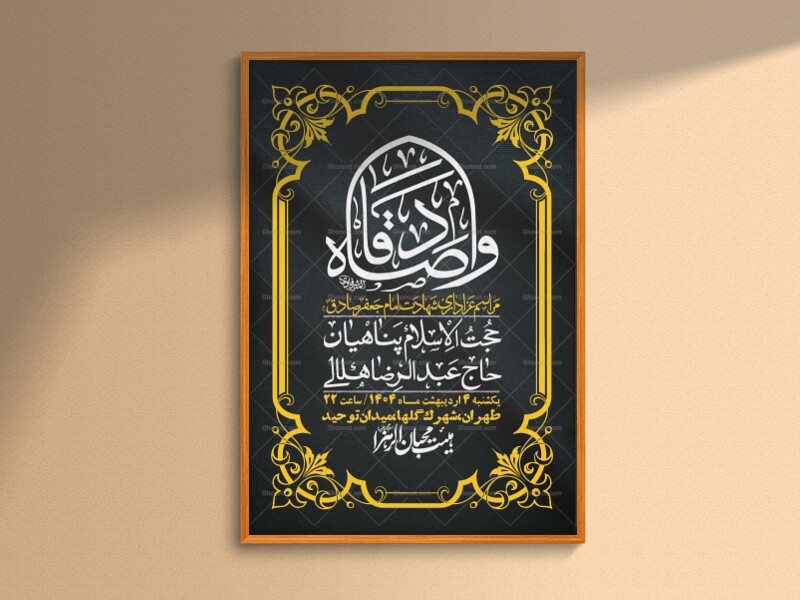 واصادقاه
مراسم عزاداری شهادت امام جعفر صادق
حجت الاسلام پناهیان
حاج عبدالرضا هلالی
یکشنبه ۴ اردیبهشت مـاه ۱۴۰۴ / ساعت ۲۲
طهران، شهرک گلها، میدان توحید
هیئت محبان الزهرا